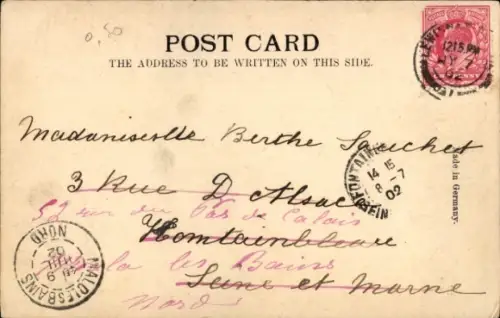 0,50
POST CARD
THE ADDRESS TO BE WRITTEN ON THIS SIDE.
12 15 PM
Mademoiselle Berthe Sauchet
3 Rue D Alsace
52 rue du Pas de Calais
Fontainebleau
les Bains
Seine et Marne
Nord
FONTAINE
14 15
8 - 7
02
Made in Germany.
MALO LES BAINS
9
02
NORD